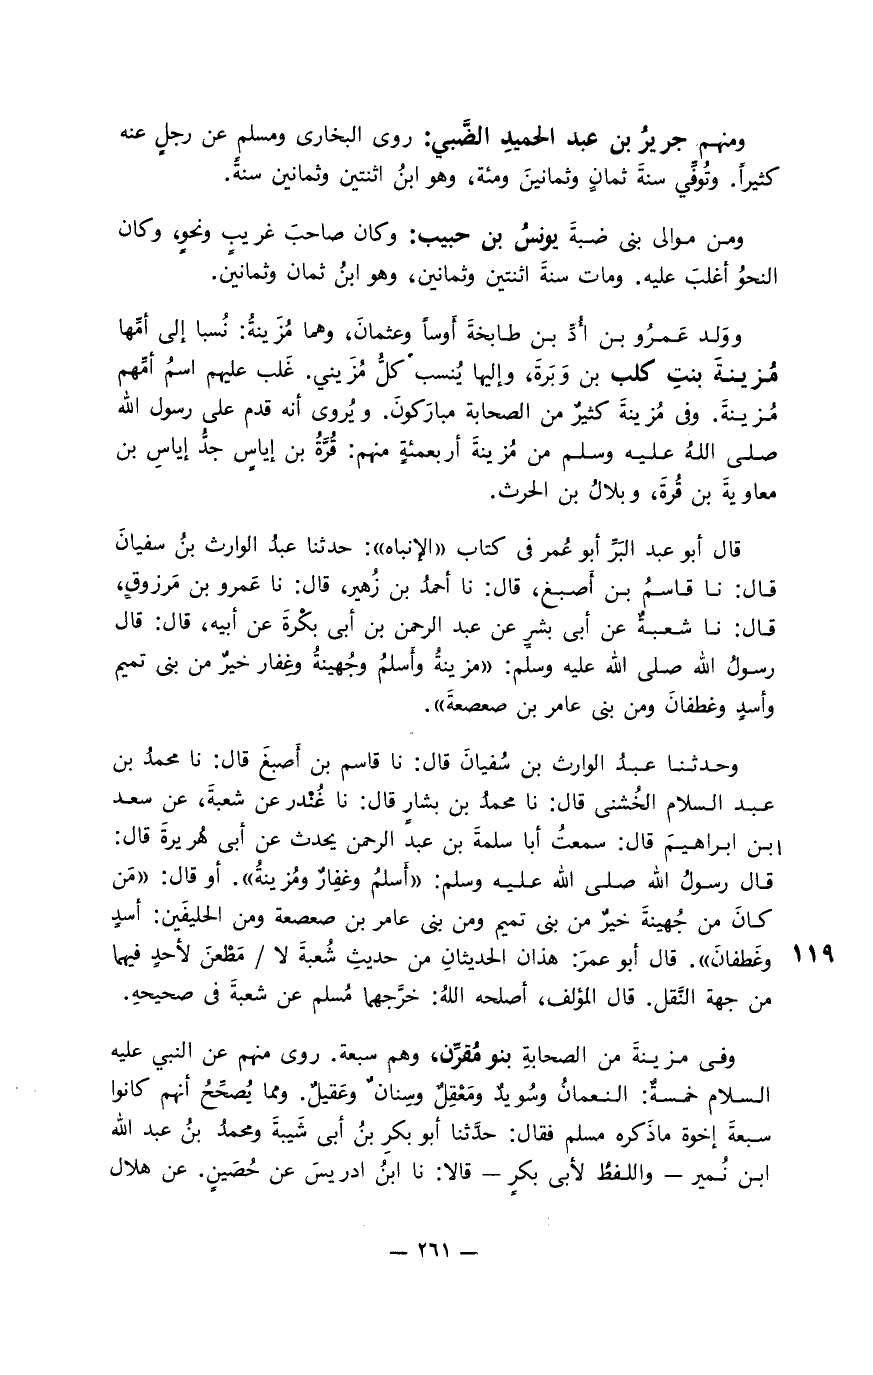 ومنهم جريرُ بن عبد الحميدِ الضَّبي: روى البخارى ومسلم عن رجلٍ عنه
كثيراً. وتُوفِّي سنةَ ثمانٍ وثمانينَ ومئة، وهو ابنُ اثنتين وثمانين سنةً.
ومن موالى بنى ضبةَ يونسُ بن حبيب: وكان صاحبَ غريبٍ ونحوٍ، وكان
النحوُ أغلبَ عليه. ومات سنةَ اثنتين وثمانين، وهو ابنُ ثمان وثمانين.
وولد عَمرُو بن أُدِّ بن طابخةَ أوساً وعثمانَ، وهما مُزَينةُ: نُسبا إلى أمِّها
مُزينةَ بنتِ كلب بن وَبَرةَ، وإليها يُنسب كلُّ مُزَيني. غَلب عليهم اسمُ أمِّهم
مُزينةَ. وفى مُزينةَ كثيرٌ من الصحابة مبارَكونَ. ويُروى أنه قدم على رسول الله
صلى اللهُ عليه وسلم من مُزينةَ أربعمئةٍ منهم: قُرَّةُ بن إياسٍ جدُّ إياسِ بن
معاويةَ بن قُرةَ، وبلالُ بن الحرث.
قال أبو عبد البَرِّ أبو عُمر فى كتاب «الإنباه»: حدثنا عبدُ الوارث بنُ سفيانَ
قال: نا قاسمُ بن أَصبغ، قال: نا أحمدُ بن زُهير، قال: نا عَمرو بن مَرزوقٍ،
قال: نا شعبةٌ عن أبى بشرٍ عن عبد الرحمن بن أبى بكْرةَ عن أبيه، قال: قال
رسولُ الله صلى الله عليه وسلم: «مزينةُ وأَسلمُ وجُهينةُ وغِفار خيرٌ من بنى تميم
وأسدٍ وغطفانَ ومن بنى عامر بن صعصعةَ».
وحدثنا عبدُ الوارث بن سُفيانَ قال: نا قاسم بن أَصبغَ قال: نا محمدُ بن
عبد السلام الخُشنى قال: نا محمدُ بن بشارٍ قال: نا غُنْدر عن شعبةَ، عن سعد
ابن ابراهيمَ قال: سمعتُ أبا سلمةَ بن عبد الرحمن يحدث عن أبى هُريرةَ قال:
قال رسولُ الله صلى الله عليه وسلم: «أَسلمُ وغفارٌ ومُزينةُ». أو قال: «مَن
كانَ من جُهينةَ خيرٌ من بنى تميم ومن بنى عامر بن صعصعة ومن الحليفَين: أسدٍ
١١٩ وغَطفانَ». قال أبو عمرَ: هذان الحديثانِ من حديثِ شُعبةَ لا / مَطْعنَ لأحدٍ فيها
من جهة النَّقل. قال المؤلف، أصلحه اللهُ: خرَّجها مُسلم عن شعبةَ فى صحيحهِ.
وفى مزينةَ من الصحابةِ بنو مُقَرِّن، وهم سبعة. روى منهم عن النبي عليه
السلام خمسةٌ: النعمانُ وسُويدٌ ومَعْقِلٌ وسِنان وعَقيلٌ. ومما يُصحِّحُ أنهم كانوا
سبعةَ إخوة ماذكره مسلم فقال: حدَّثنا أبو بكرِ بنُ أبى شَيبةَ ومحمدُ بنُ عبد الله
ابن نُمير — واللفظُ لأبى بكرٍ — قالا: نا ابنُ ادريسَ عن حُصَينٍ. عن هلال
— ٢٦١ —